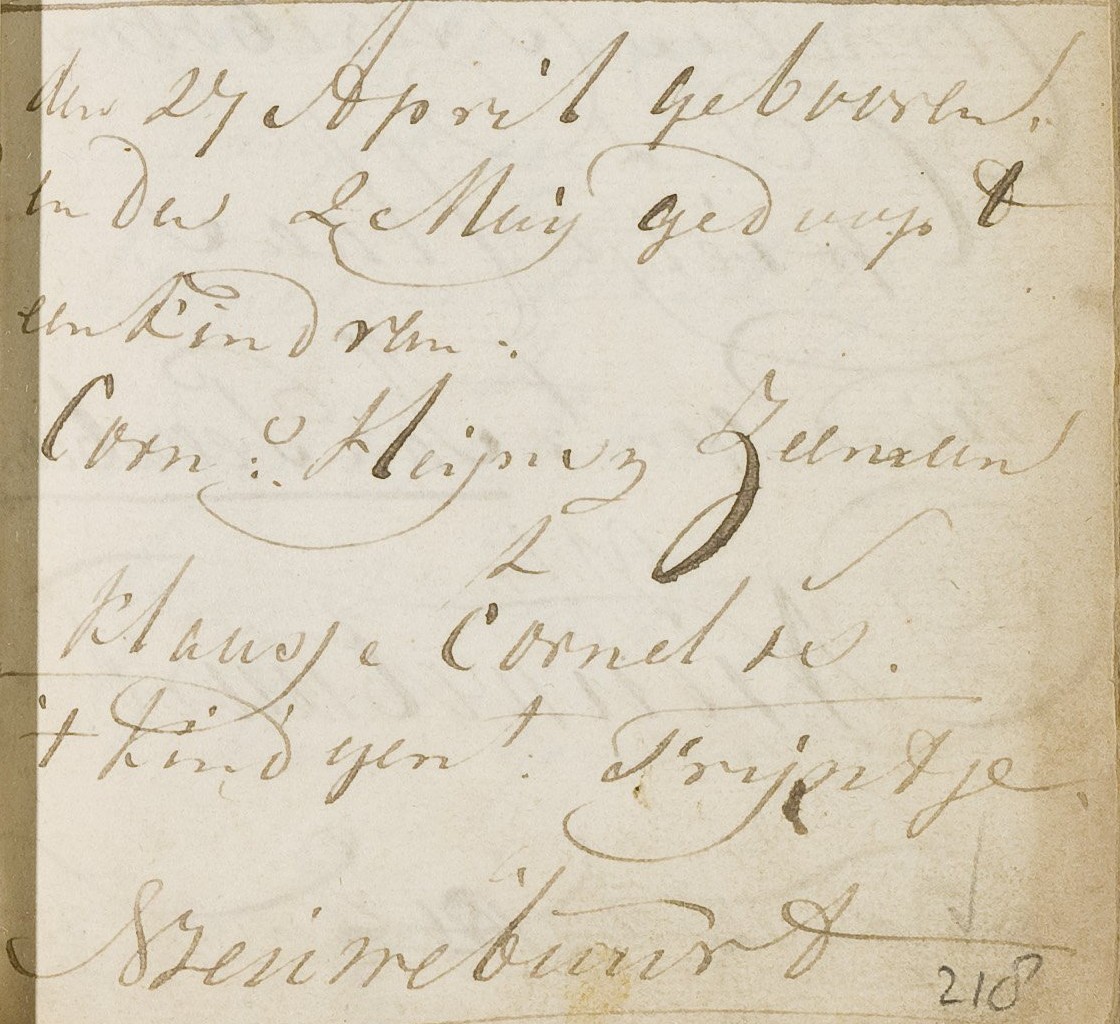 den 27 April gebooren.
en den 2 Meij gedoopt
een kind van.
Corn:s Kleijnsz Zeeman
&
Klaasje Cornelis.
't kind gen:t Trijntje
Nieuwebuurt
218